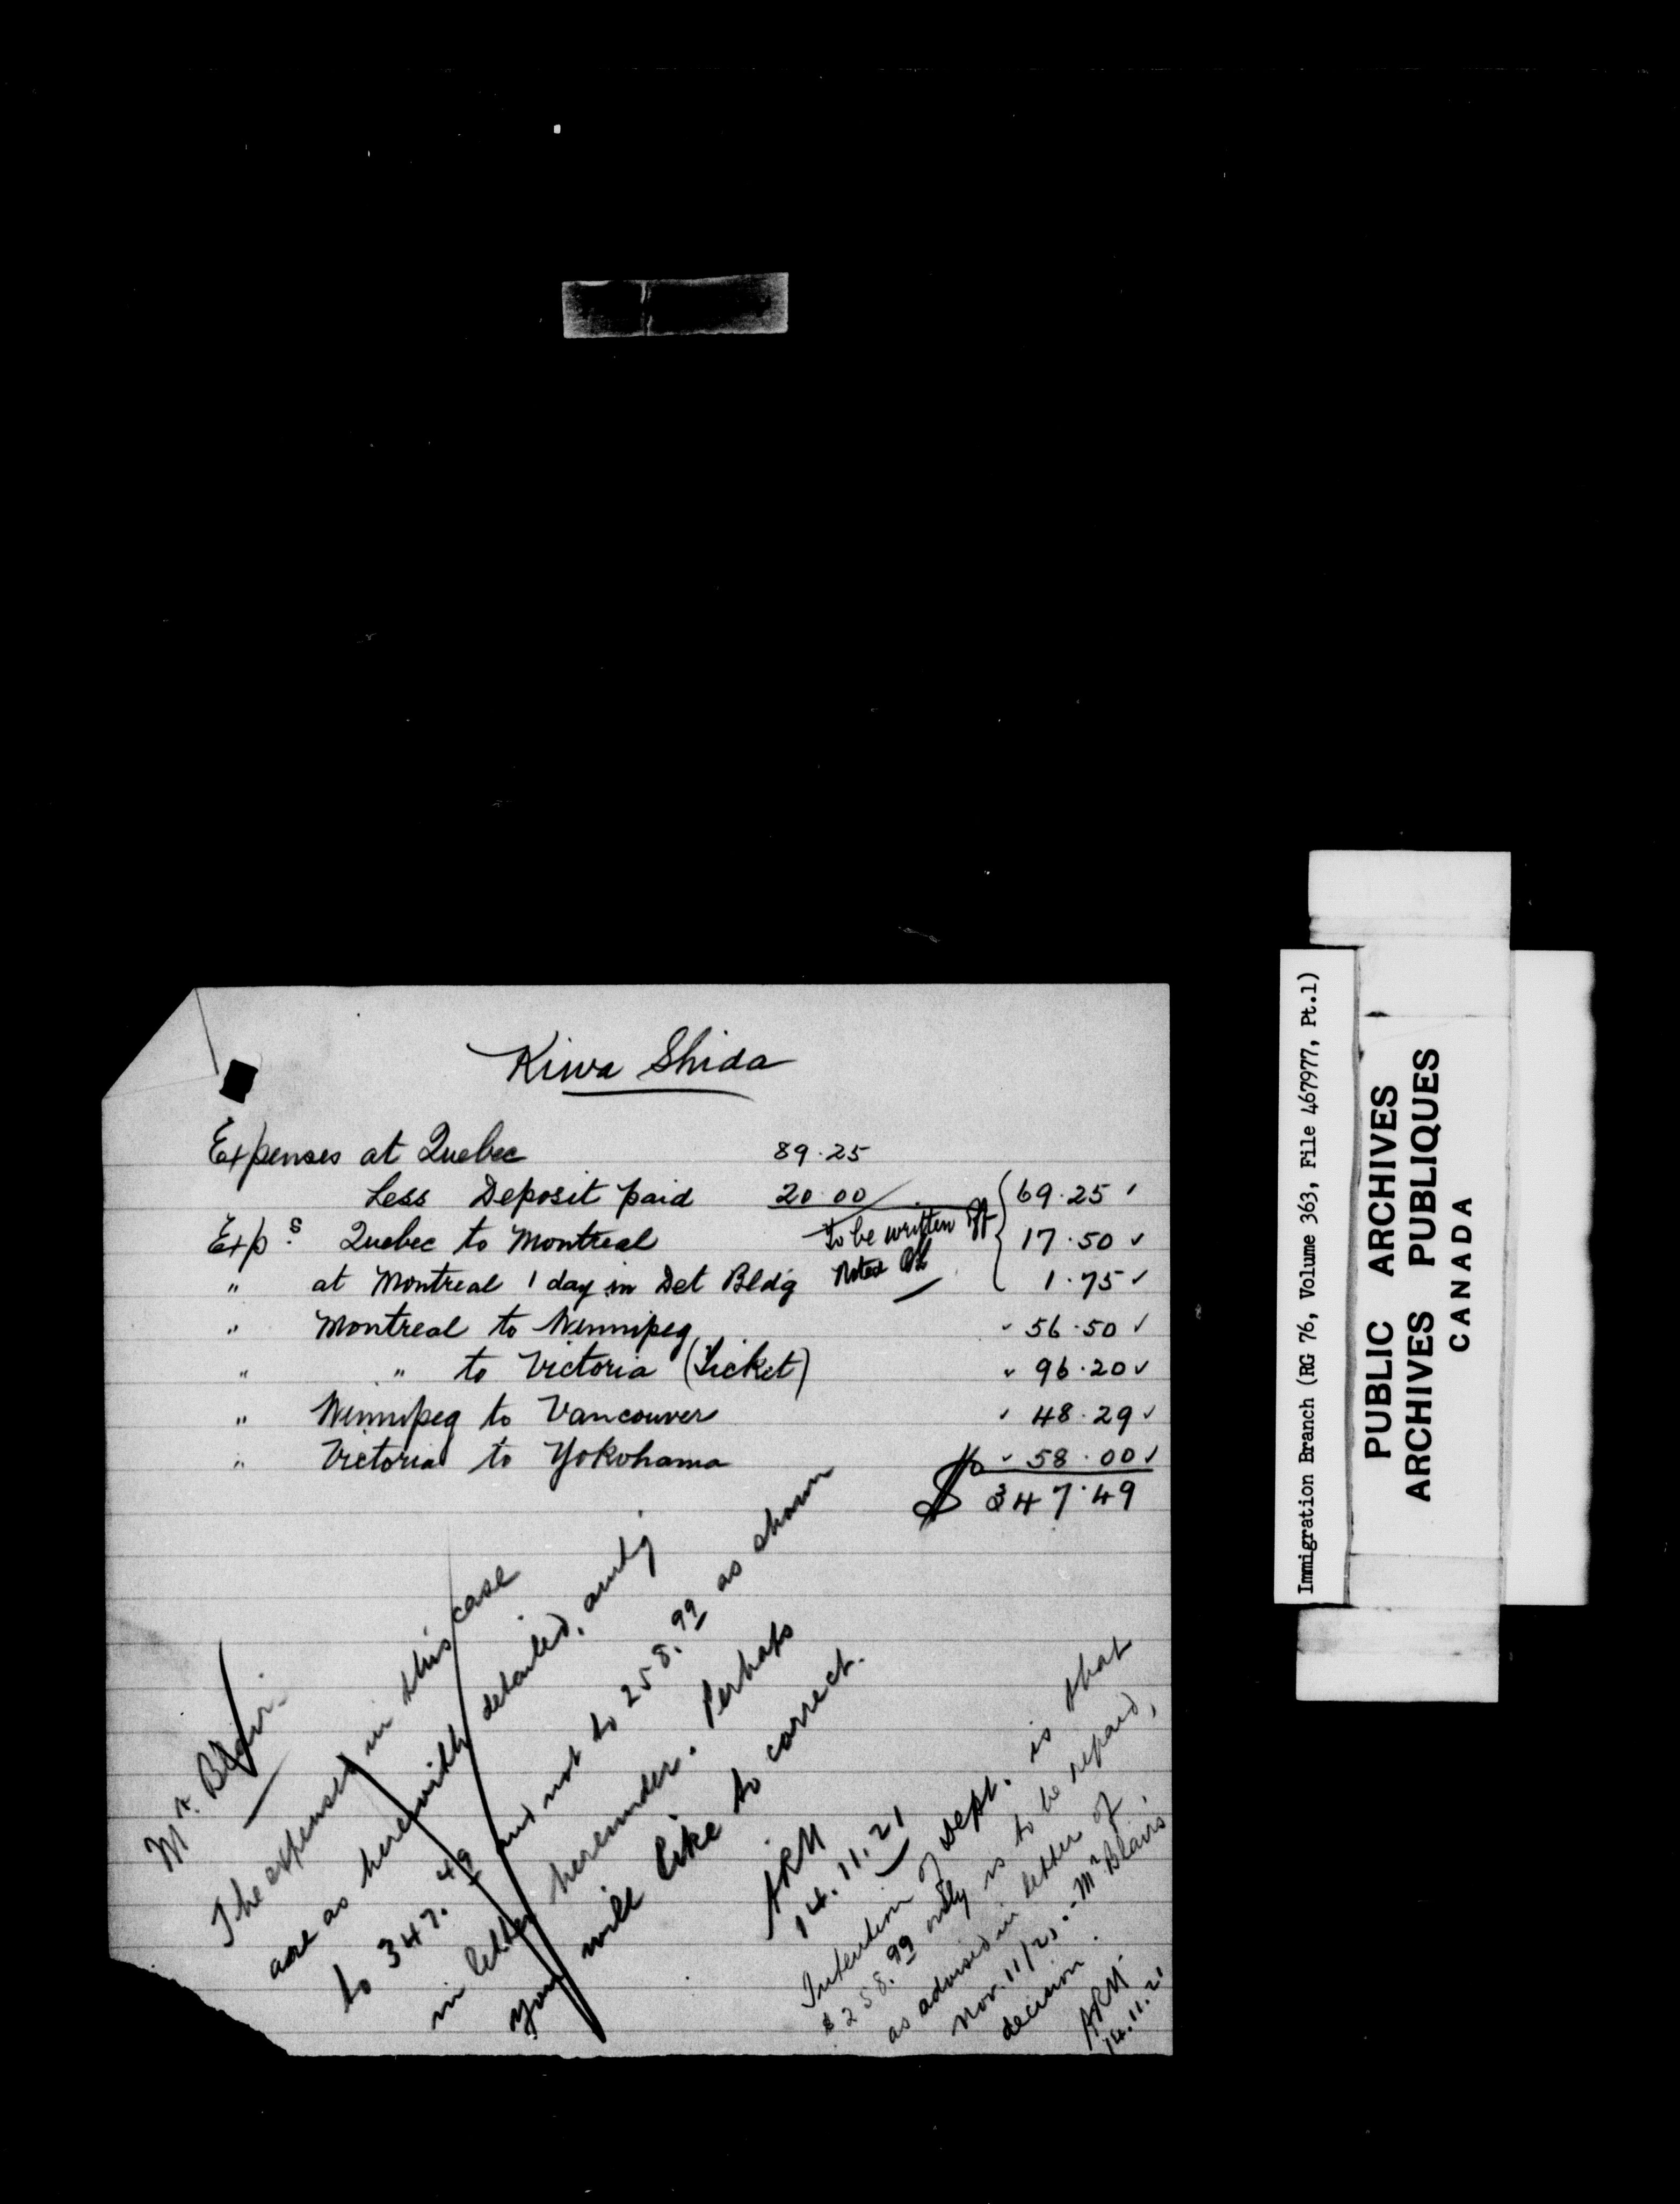 Kiwa Shida
Expenses at Quebec 89.25
Less Deposit paid 20.00 69.25
Exp.s Quebec to Montreal 17.50
To be written off
Noted
" at Montreal 1 day in Det Bldg 1.75
" Montreal to Winnipeg 56.50
" " to Victoria (Ticket) 96.20
" Winnipeg to Vancouver 48.29
" Victoria to Yokohama 58.00
$ 347.49
Mr. Blair.
The expenses in this case
are as herewith detailed, amtg
to 347.49 and not to 258.99 as shown
in letter hereunder. Perhaps
you will like to correct.
ARM
14.11.21
Intention of Dept. is that
$258.99 only is to be repaid,
as advised in letter of
Nov. 11/21. - Mr Blair's
decision.
ARM
14.11.21
Immigration Branch (RG 76, Volume 363, File 467977, Pt.1)
PUBLIC ARCHIVES
ARCHIVES PUBLIQUES
CANADA